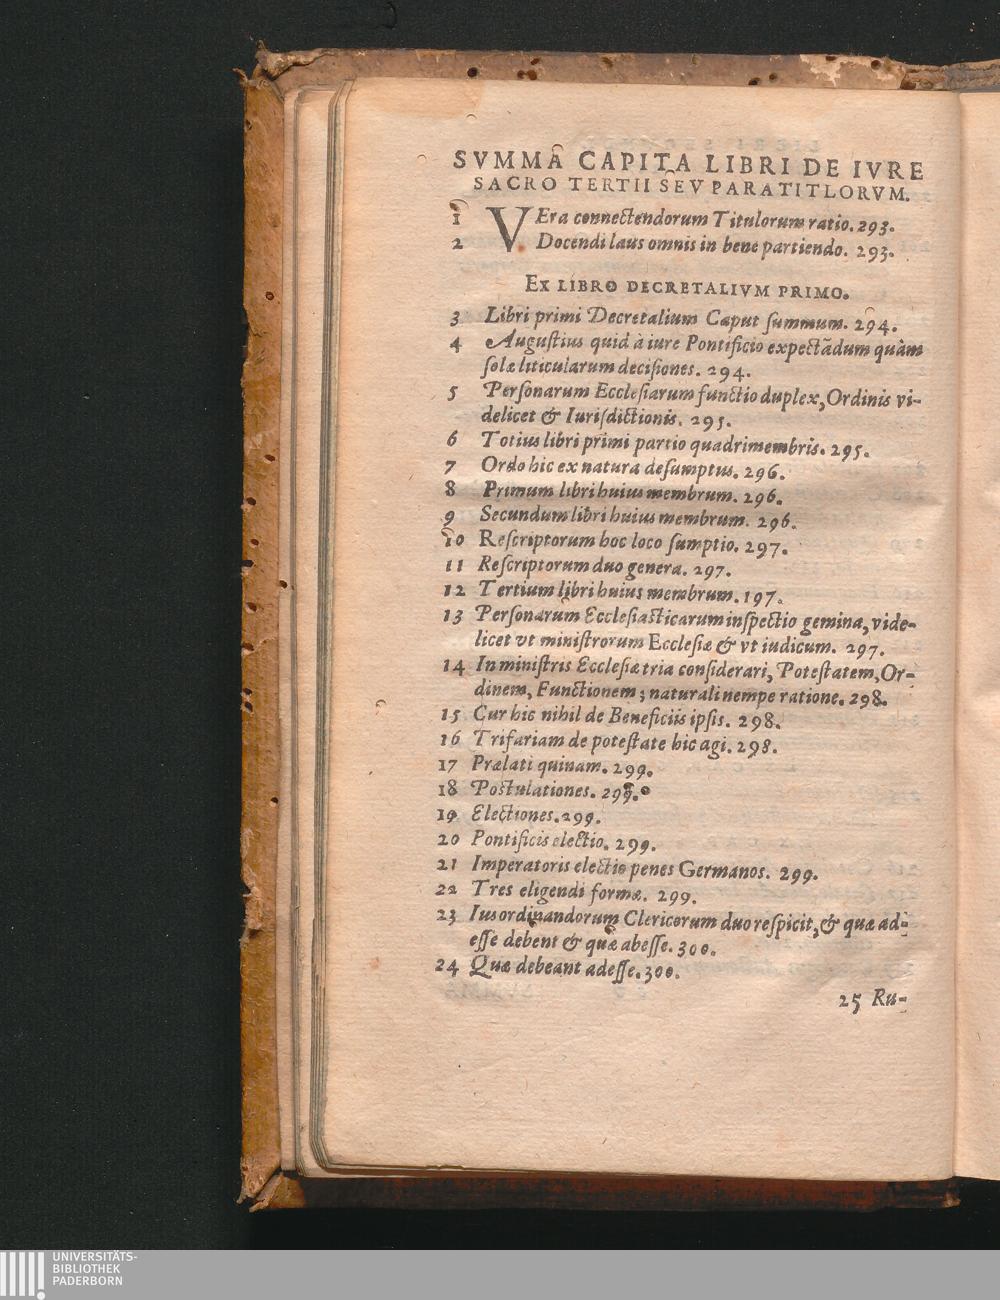 SVMMA CAPITA LIBRI DE IVRE
SACRO TERTII SEV PARATITLORVM.
1 VEra connectendorum Titulorum ratio. 293.
2 Docendi laus omnis in bene partiendo. 293.
EX LIBRO DECRETALIVM PRIMO.
3 Libri primi Decretalium Caput summum. 294.
4 Augustius quid à iure Pontificio expectãdum quàm
solæ liticularum decisiones. 294.
5 Personarum Ecclesiarum functio duplex, Ordinis vi-
delicet & Iurisdictionis. 295.
6 Totius libri primi partio quadrimembris. 295.
7 Ordo hic ex natura desumptus. 296.
8 Primum libri huius membrum. 296.
9 Secundum libri huius membrum. 296.
10 Rescriptorum hoc loco sumptio. 297.
11 Rescriptorum duo genera. 297.
12 Tertium libri huius membrum. 197.
13 Personarum Ecclesiasticarum inspectio gemina, vide-
licet vt ministrorum Ecclesiæ & vt iudicum. 297.
14 In ministris Ecclesiæ tria considerari, Potestatem, Or-
dinem, Functionem; naturali nempe ratione. 298.
15 Cur hic nihil de Beneficiis ipsis. 298.
16 Trifariam de potestate hic agi. 298.
17 Prælati quinam. 299.
18 Postulationes. 299.
19 Electiones. 299.
20 Pontificis electio. 299.
21 Imperatoris electio penes Germanos. 299.
22 Tres eligendi formæ. 299.
23 Ius ordinandorum Clericorum duo respicit, & quæ ad-
esse debent & quæ abesse. 300.
24 Quæ debeant adesse. 300.
25 Ru-
UNIVERSITÄTS-
BIBLIOTHEK
PADERBORN